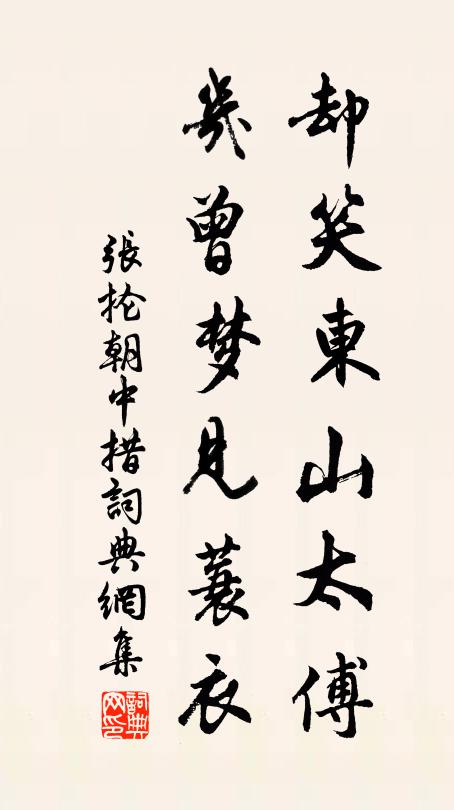 却笑東山太傅
幾曾梦見蓑衣
張抡朝中措詞典網集
詞典网印